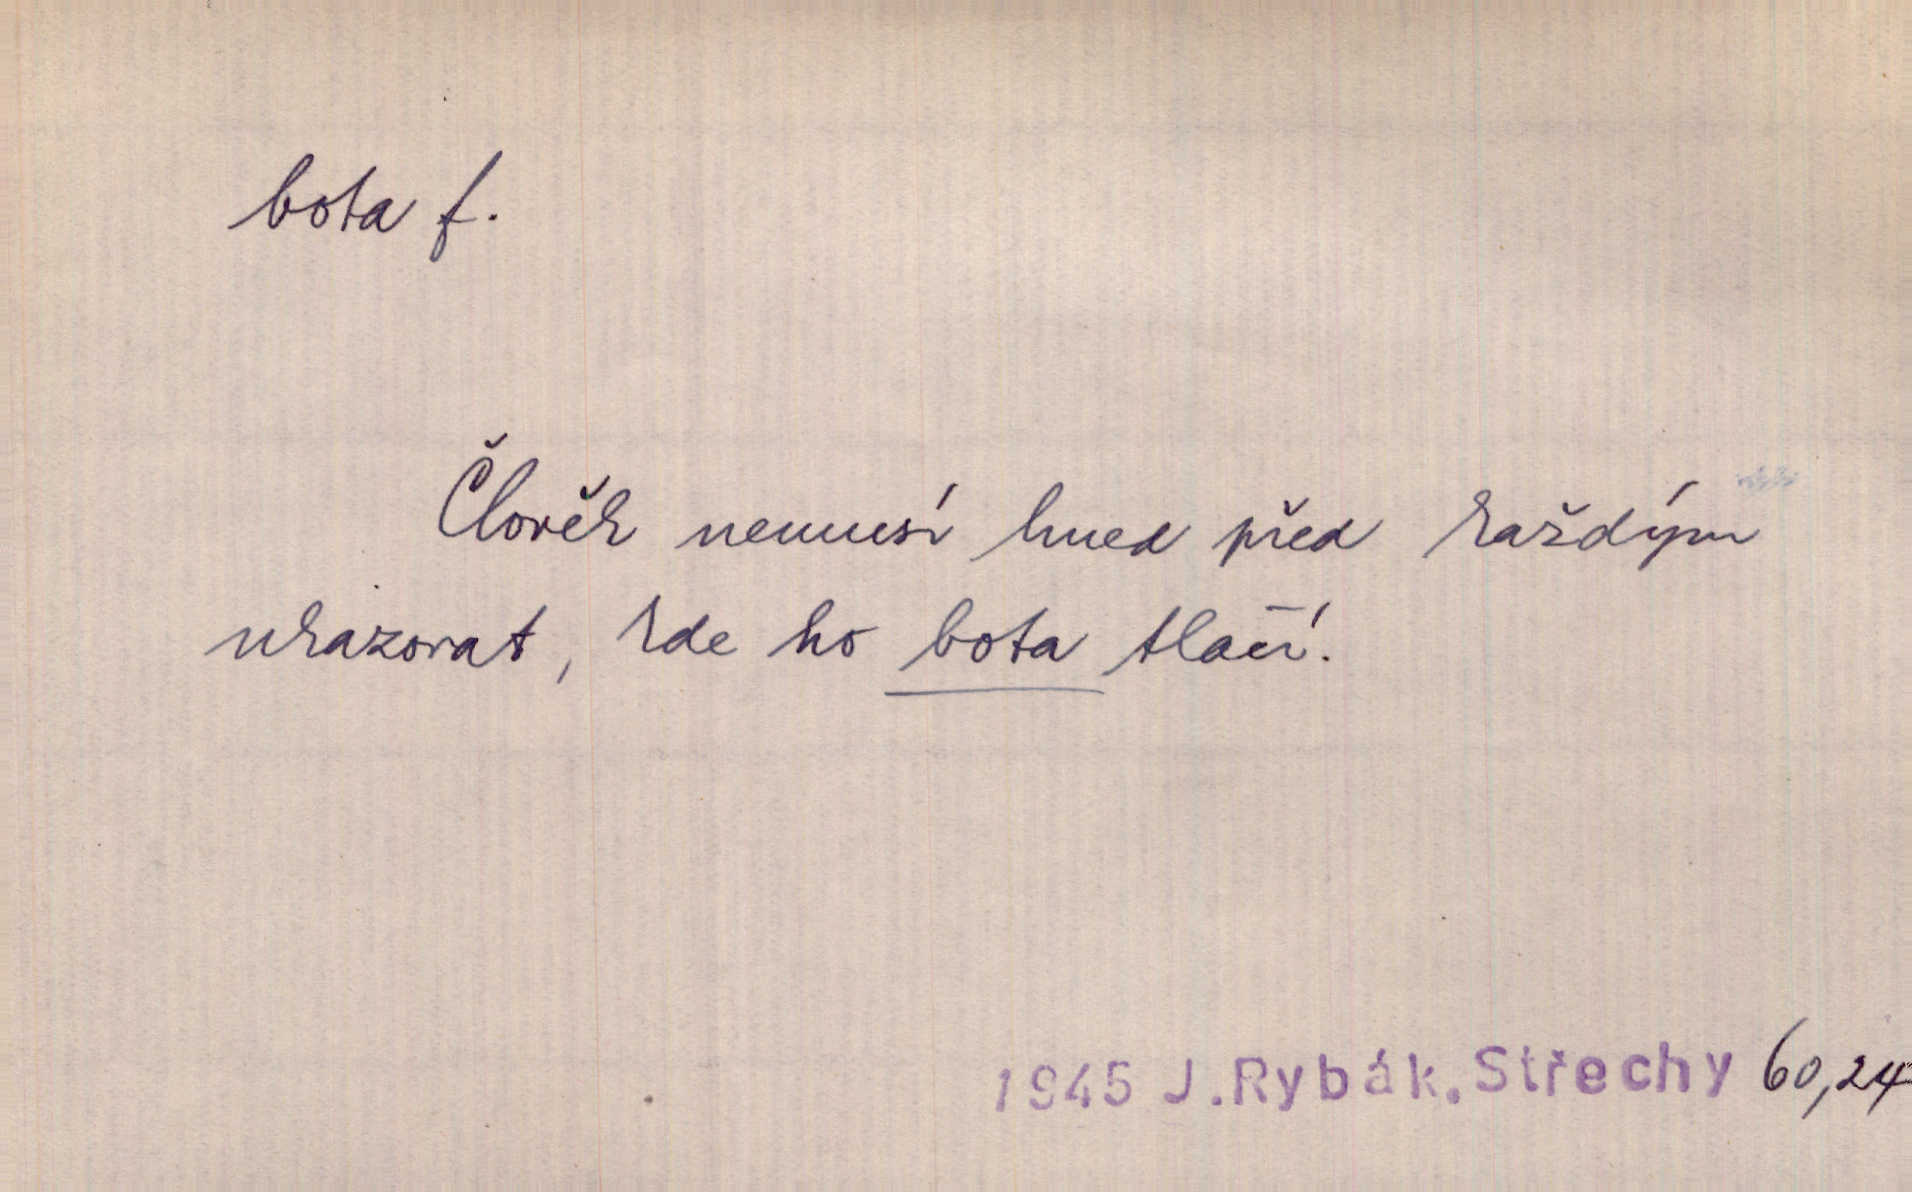 bota f.
Člověk nemusí hned před každým
ukazovat, kde ho bota tlačí.
1945 J. Rybák, Střechy 60,24